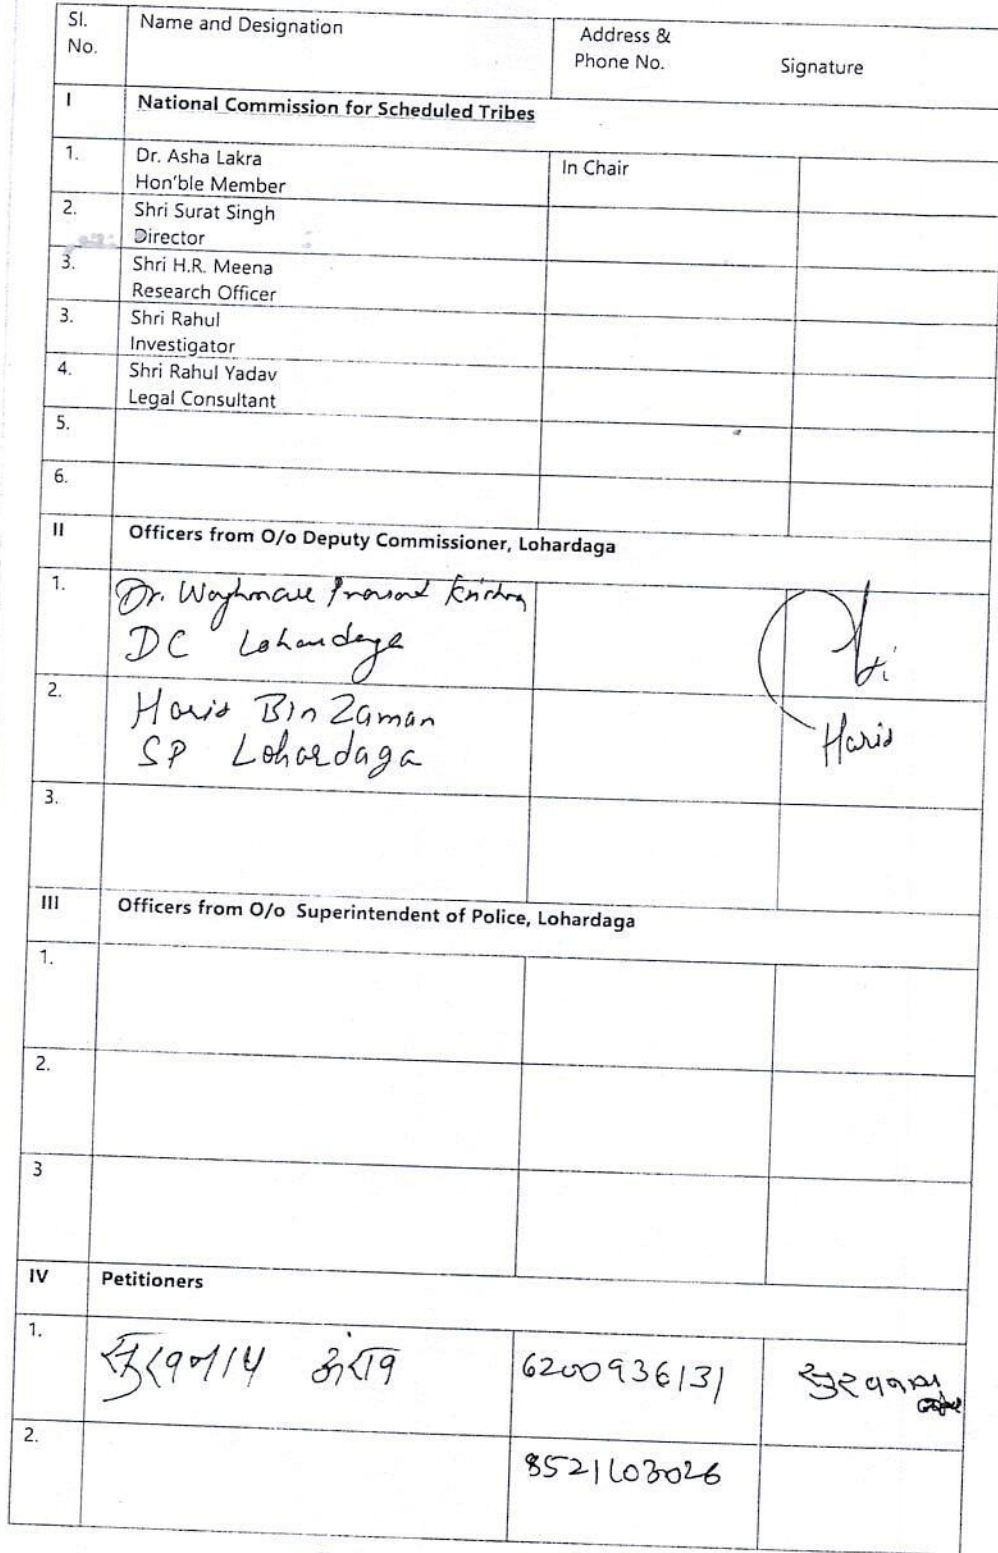 Sl. No. Name and Designation Address & Phone No. Signature
I National Commission for Scheduled Tribes
1. Dr. Asha Lakra In Chair
Hon'ble Member
2. Shri Surat Singh
Director
3. Shri H.R. Meena
Research Officer
3. Shri Rahul
Investigator
4. Shri Rahul Yadav
Legal Consultant
5.
6.
II Officers from O/o Deputy Commissioner, Lohardaga
1. Dr. Waghmare Prasad Krishna
DC Lohardaga
2. Haris Bin Zaman
SP Lohardaga Haris
3.
III Officers from O/o Superintendent of Police, Lohardaga
1.
2.
3
IV Petitioners
1. 6200936131
2. 8521603026